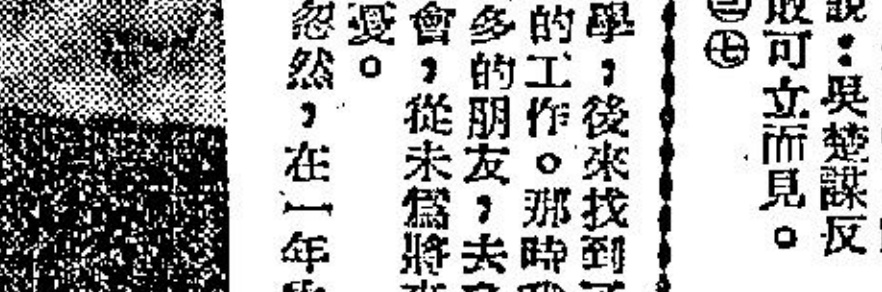 說：吳楚謀反
敗可立而見。
㊆
學，後來找到
的工作。那時
多的朋友，去
會，從未爲將
憂。
忽然，在一年